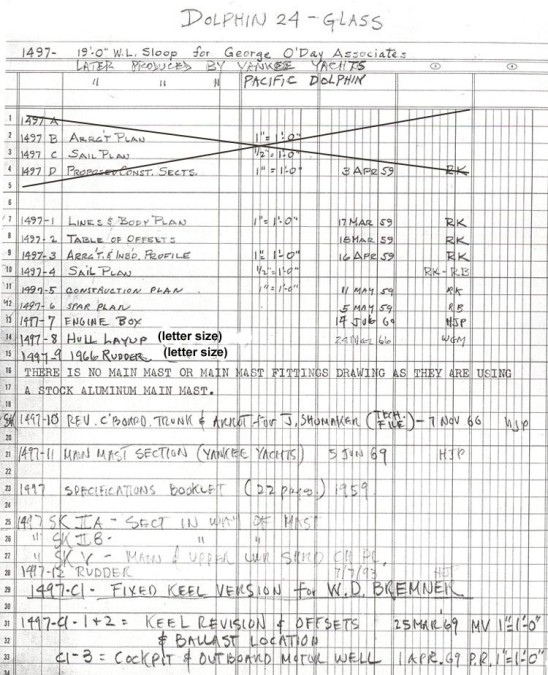 DOLPHIN 24 - GLASS
1497- 19'-0" W.L. Sloop for George O'Day Associates
LATER PRODUCED BY YANKEE YACHTS
" " " PACIFIC DOLPHIN
1 1497 A
2 1497 B ARRG'T PLAN 1"=1'-0"
3 1497 C SAIL PLAN 1/2"=1'-0"
4 1497 D PROPOSED CONST. SECTS. 1"=1'-0" 3 APR 59 RK
5
6
7 1497-1 LINES & BODY PLAN 1"=1'-0" 17 MAR 59 RK
8 1497-2 TABLE OF OFFSETS 18 MAR 59 RK
9 1497-3 ARRG'T. & INB'D. PROFILE 1"=1'-0" 16 APR 59 RK
10 1497-4 SAIL PLAN 1/2"=1'-0" RK-RB
11 1497-5 CONSTRUCTION PLAN 1"=1'-0" 11 MAY 59 RK
12 1497-6 SPAR PLAN 5 MAY 59 RB
13 1497-7 ENGINE BOX 14 JUL 60 HJP
14 1497-8 HULL LAYUP (letter size) 66 WGM
15 1497-9 1966 RUDDER. (letter size)
16 THERE IS NO MAIN MAST OR MAIN MAST FITTINGS DRAWING AS THEY ARE USING
17 A STOCK ALUMINUM MAIN MAST.
18
SK 1497-10 REV. C'BOARD. TRUNK & ARRG'T for J. SHUMAKER (TECH. FILE) - 7 NOV 66 HJP
20
21 1497-11 MAIN MAST SECTION (YANKEE YACHTS) 5 JUN 69 HJP
22
23 1497 SPECIFICATIONS BOOKLET (22 pages.) 1959
24
25 1497 SK II A - SECT IN WAY OF MAST
26 " SK II B - " "
27 " SK V - MAIN & UPPER CH. PL.
28 1497-12 RUDDER 7/7/93 HJ
29 1497-C1- FIXED KEEL VERSION for W.D. BREMNER
30
31 1497-C1-1+2 = KEEL REVISION & OFFSETS 25 MAR '69 MV 1"=1'-0"
32 & BALLAST LOCATION
33 C1-3 = COCKPIT & OUTBOARD MOTOR WELL 1 APR. 69 P.R. 1"=1'-0"
34